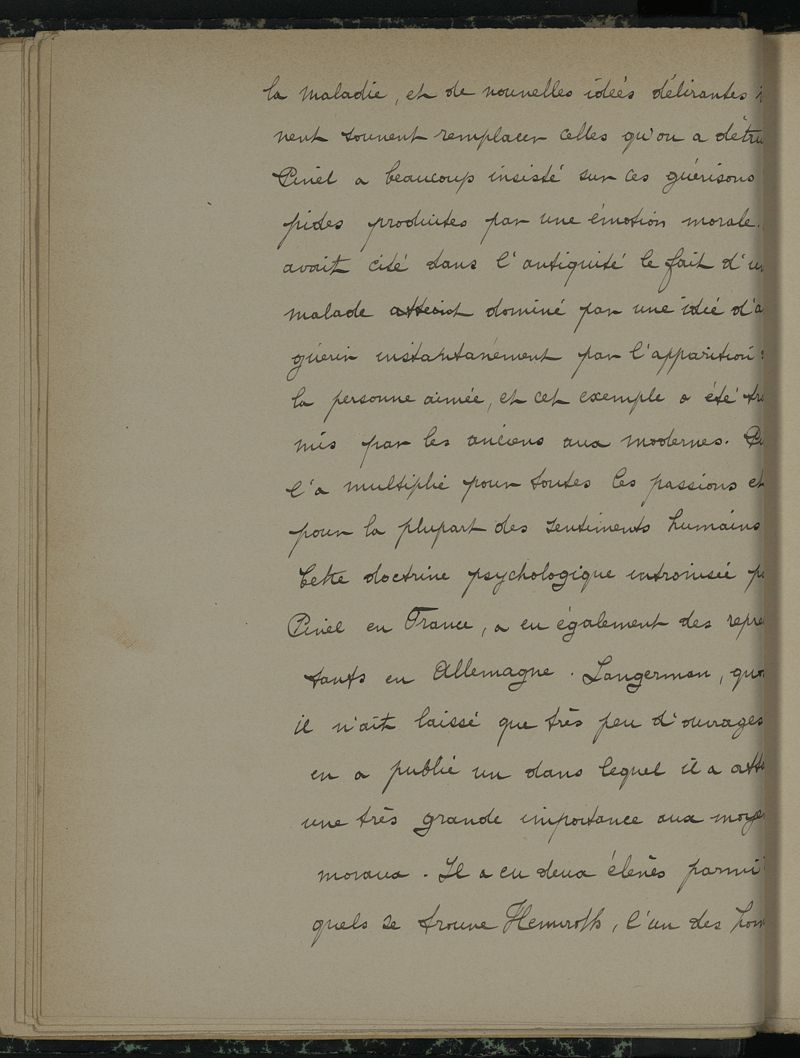 la maladie, et de nouvelles idées délirantes
nent souvent remplacer celles qu'on a détru
Pinel a beaucoup insisté sur ces guérisons
pides produites par une émotion morale.
avait cité dans l'antiquité le fait d'u
malade atteint dominé par une idée d'a
guérir instantanément par l'apparition
la personne aimée, et cet exemple a été tra
mis par les anciens aux modernes. Pi
l'a multiplié pour toutes les passions et
pour la plupart des sentiments humains
Cette doctrine psychologique introduite p
Pinel en France, a eu également des repré
tants en Allemagne. Langerman, quo
il n'ait laissé que très peu d'ouvrages
en a publié un dans lequel il a atta
une très grande importance aux moye
moraux. Il a eu deux élèves parmi
quels se trouve Heinroth, l'un des hom